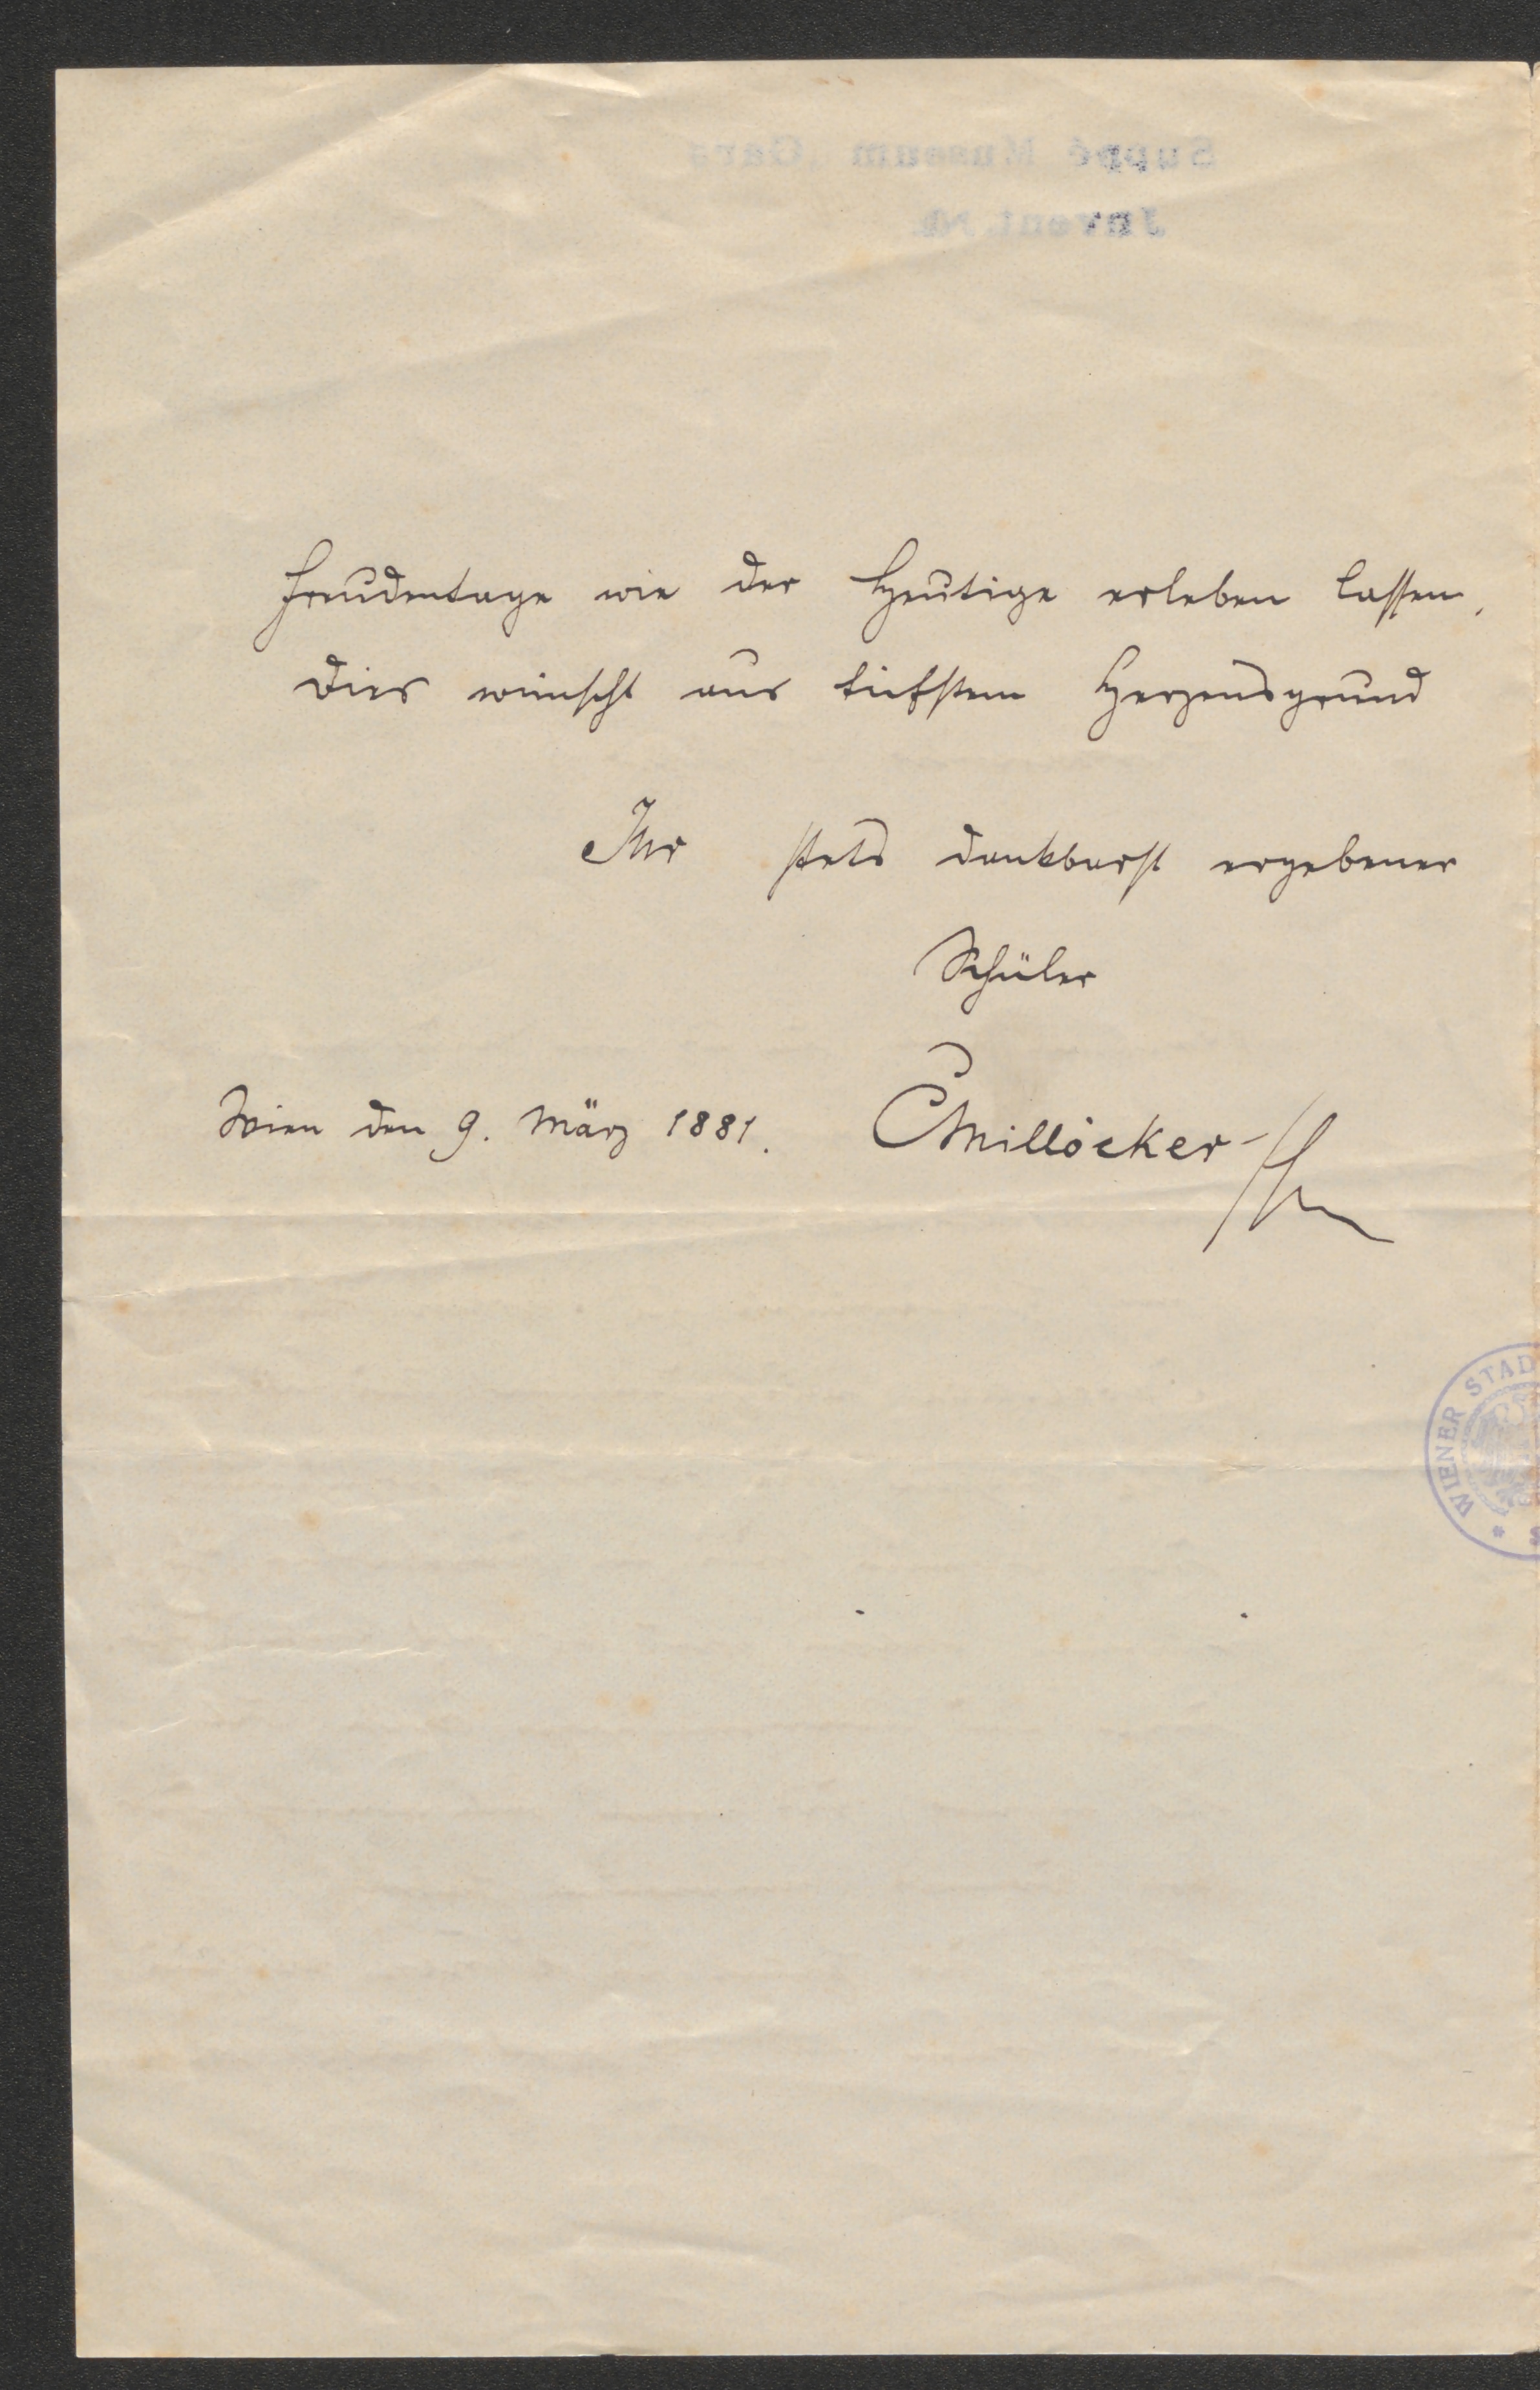 Suppé Museum Gars
Invent. No.
Freudentage wie der Heutige erleben lassen,
dies wünscht aus tiefstem Herzensgrund
Ihr stets dankbarst ergebener
Schüler
Wien den 9. März 1881. CMillöcker
WIENER STAD
* S